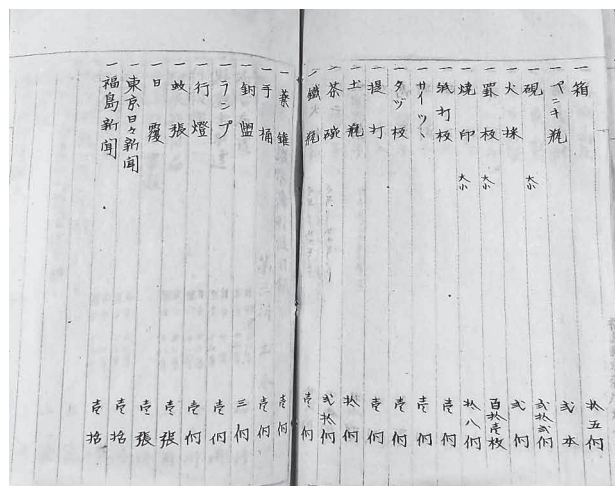 一箱 拾五個
一ヤニキ瓶 弐本
一硯 大小 弐拾弐個
一火鉢 弐個
一罫板 大小 百拾壱枚
一焼印 大小 拾八個
一紙打板 壱個
一サイツヽ 壱個
一タツ板 壱個
一提灯 壱個
一土瓶 拾個
一茶碗 弐拾個
一鐵瓶 壱個
一薬鑵 壱個
一手桶 壱個
一銅盥 三個
一ランプ 壱個
一行燈 壱個
一蚊張 壱張
一日覆 壱張
一東京日々新聞 壱括
一福島新聞 壱括